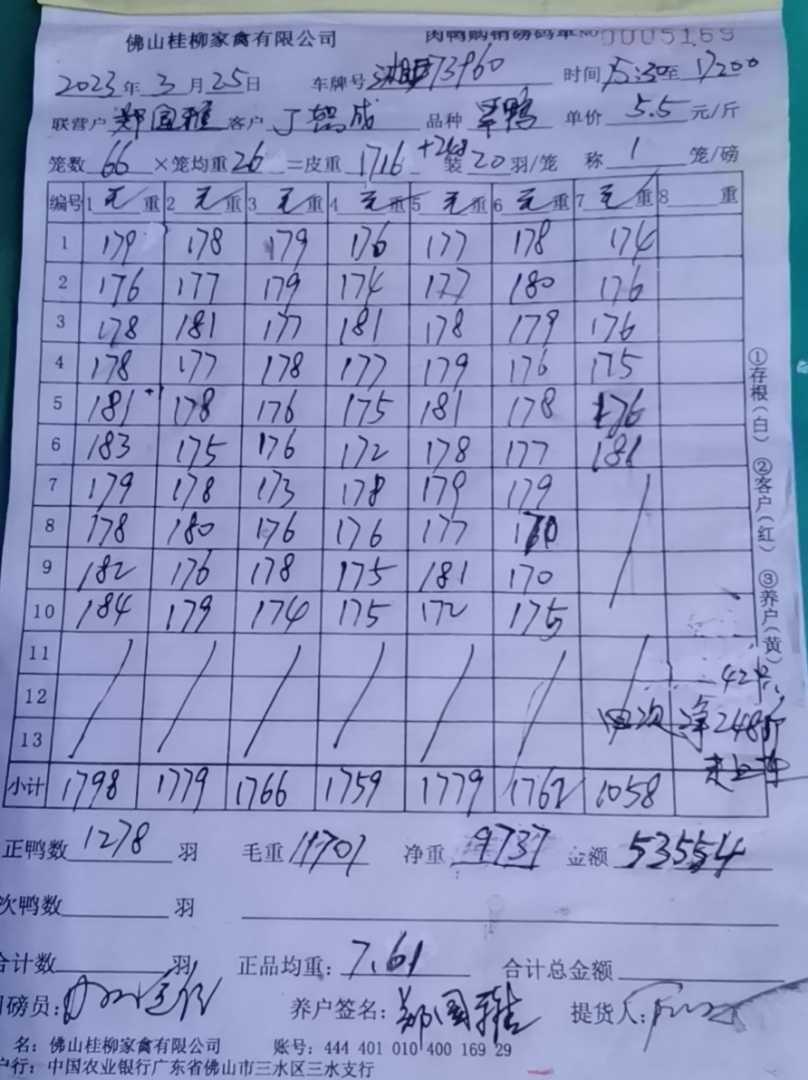 佛山桂柳家禽有限公司 肉鸭购销磅码单 No 0005169
2023年3月25日 车牌号 湘 73960 时间 15:30至17200
联营户 郑国雅 客户 丁 成 品种 单 价 5.5 元/斤
笼数 66 ×笼均重 26 =皮重 1716 +248 装 20 羽/笼 称 1 笼/磅
编号 1 毛 重 2 毛 重 3 毛 重 4 毛 重 5 毛 重 6 毛 重 7 毛 重 8 重
1 179 178 179 176 177 178 174
2 176 177 179 174 177 180 176
3 178 181 177 181 178 179 176
4 178 177 178 177 179 176 175
5 181 178 176 175 181 178 176
6 183 175 176 172 178 177 181
7 179 178 173 178 179 179
8 178 180 176 176 177
9 182 176 178 175 181 170
10 184 179 174 175 172 175
11
12 42只
13 次 净248斤
小计 1798 1779 1766 1759 1779 1762 1058
正鸭数 1278 羽 毛重 11701 净重 9737 金额 53554
次鸭数 羽
合计数 羽 正品均重: 7.61 合计总金额
磅员: 养户签名: 郑国雅 提货人:
名: 佛山桂柳家禽有限公司 账号: 444 401 010 400 169 29
户行: 中国农业银行广东省佛山市三水区三水支行
①存根(白) ②客户(红) ③养户(黄)